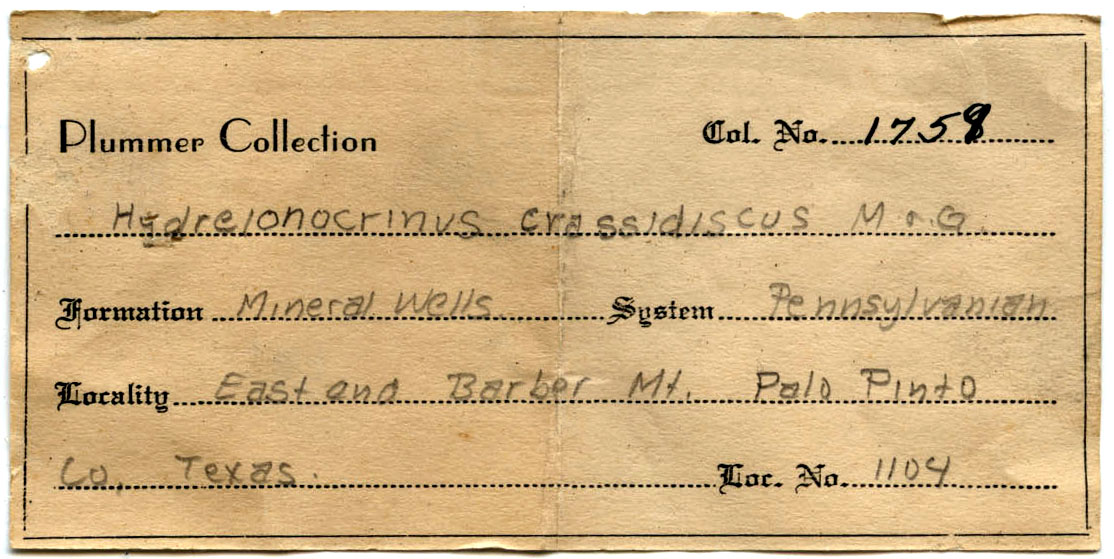 Plummer Collection Col. No. 1758
Hydreionocrinus crassidiscus M & G.
Formation Mineral Wells System Pennsylvanian
Locality East end Barber Mt. Palo Pinto
Co, Texas. Loc. No. 1104